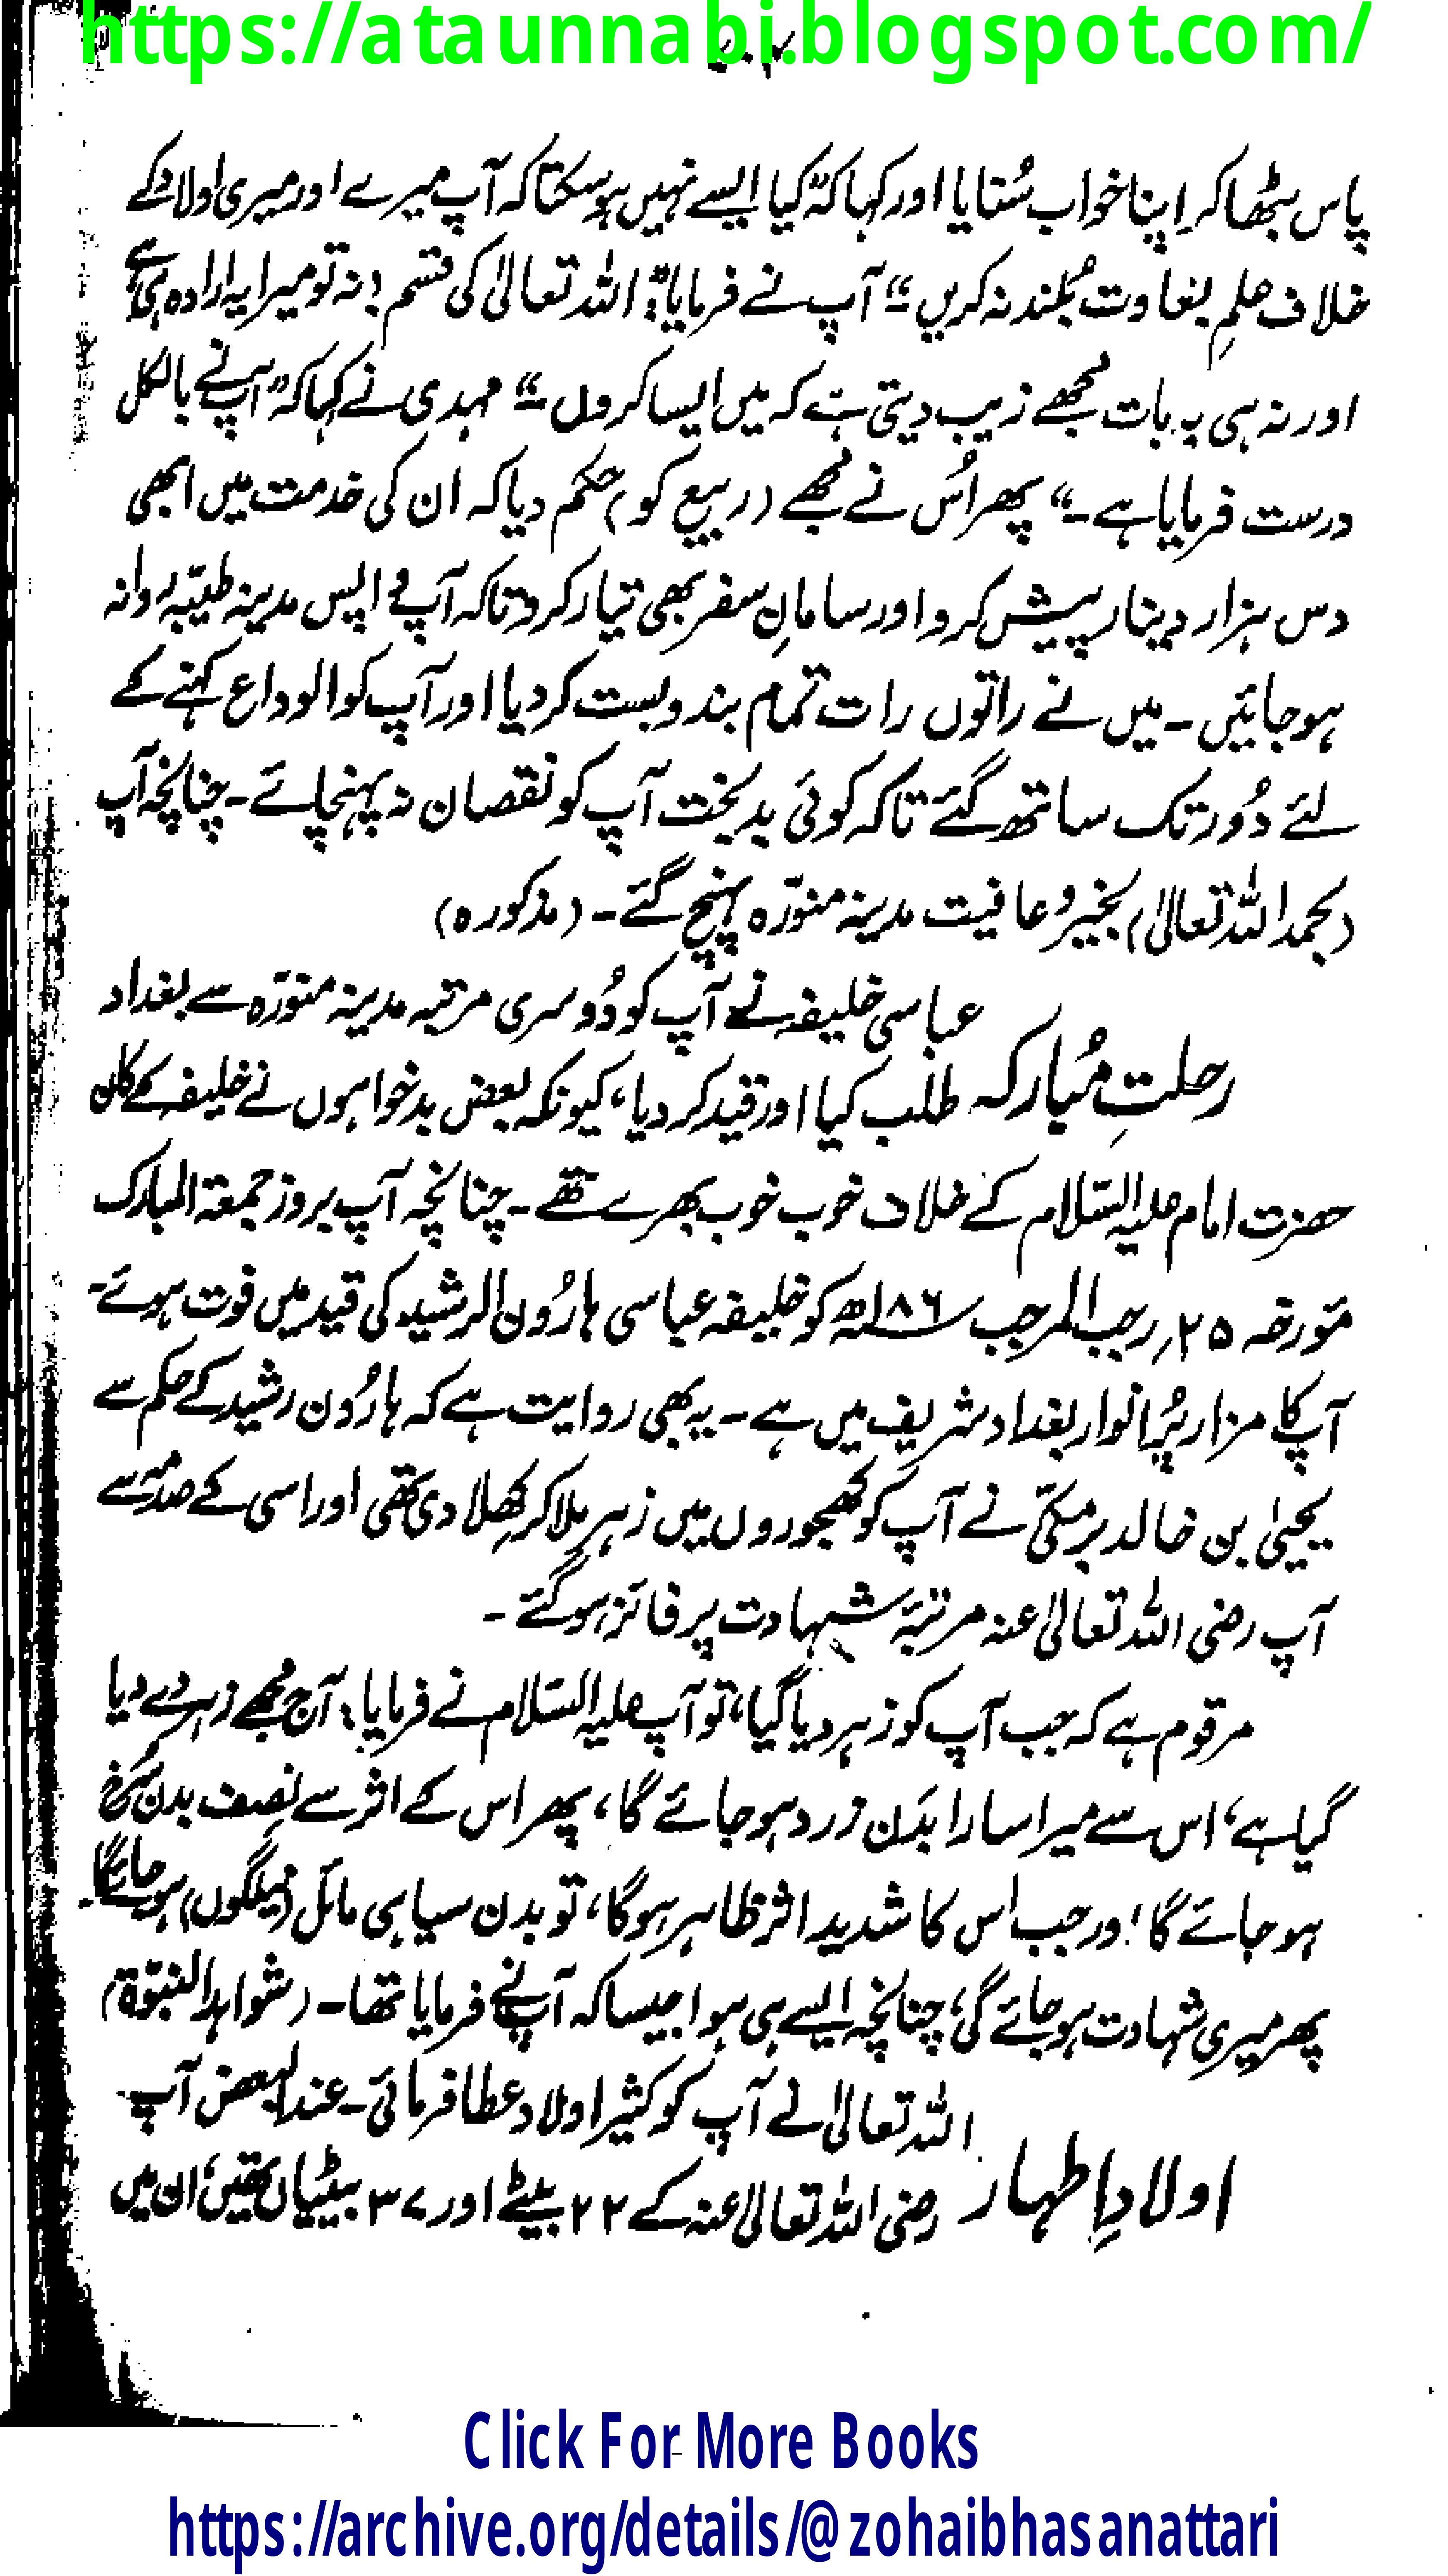 https://ataunnabi.blogspot.com/
پاس بٹھا کر اپنا خواب سُنایا اور کہا کہ ”کیا ایسے نہیں ہو سکتا کہ آپ میرے اور میری اولاد کے
خلاف علمِ بغاوت بُلند نہ کریں“ آپ نے فرمایا: ”اللہ تعالیٰ کی قسم! نہ تو میرا یہ ارادہ ہی ہے
اور نہ ہی یہ بات مجھے زیب دیتی ہے کہ میں ایسا کروں۔“ مہدی نے کہا کہ ”آپ نے بالکل
درست فرمایا ہے۔“ پھر اُس نے مجھے (ربیع کو) حکم دیا کہ ان کی خدمت میں ابھی
دس ہزار دینار پیش کرو اور سامانِ سفر بھی تیار کردو تاکہ آپ واپس مدینہ طیبّہ روانہ
ہو جائیں۔ میں نے راتوں رات تمام بندوبست کر دیا اور آپ کو الوداع کہنے کے
لئے دُور تک ساتھ گئے تاکہ کوئی بدبخت آپ کو نقصان نہ پہنچائے۔ چنانچہ آپ
(بحمد اللہ تعالیٰ) بخیر و عافیت مدینہ منوّرہ پہنچ گئے۔ (مذکورہ)
رحلتِ مُبارکہ
عباسی خلیفہ نے آپ کو دُوسری مرتبہ مدینہ منوّرہ سے بغداد
طلب کیا اور قید کر دیا، کیونکہ بعض بدخواہوں نے خلیفہ کے کان
حضرت امام علیہ السّلام کے خلاف خوب خوب بھرے تھے۔ چنانچہ آپ بروز جمعۃ المبارک
مؤرخہ ۲۵ رجب المرجب ۱۸۶ھ کو خلیفہ عباسی ہارُون الرشید کی قید میں فوت ہوئے۔
آپ کا مزار پُر انوار بغداد شریف میں ہے۔ یہ بھی روایت ہے کہ ہارُون رشید کے حکم سے
یحییٰ بن خالد برمکیّ نے آپ کو کھجوروں میں زہر ملا کر کھِلا دی تھی اور اسی کے صدمہ سے
آپ رضی اللہ تعالیٰ عنہ مرتبۂ شہادت پر فائز ہو گئے۔
مرقوم ہے کہ جب آپ کو زہر دیا گیا، تو آپ علیہ السّلام نے فرمایا: آج مجھے زہر دے دیا
گیا ہے، اس سے میرا سارا بدَن زرد ہو جائے گا، پھر اس کے اثر سے نِصف بدن سُرخ
ہو جائے گا؛ ورجب اس کا شدید اثر ظاہر ہوگا، تو بدن سیاہی مائل (نیلگوں) ہو جائے گا۔
پھر میری شہادت ہو جائے گی؛ چنانچہ ایسے ہی ہوا جیسا کہ آپ نے فرمایا تھا۔ (شواہد النبوّۃ)
اولادِ اطہار
اللہ تعالیٰ نے آپ کو کثیر اولاد عطا فرمائی۔ عند البعض آپ
رضی اللہ تعالیٰ عنہ کے ۲۲ بیٹے اور ۳۷ بیٹیاں تھیں، ان میں
Click For More Books
https://archive.org/details/@zohaibhasanattari